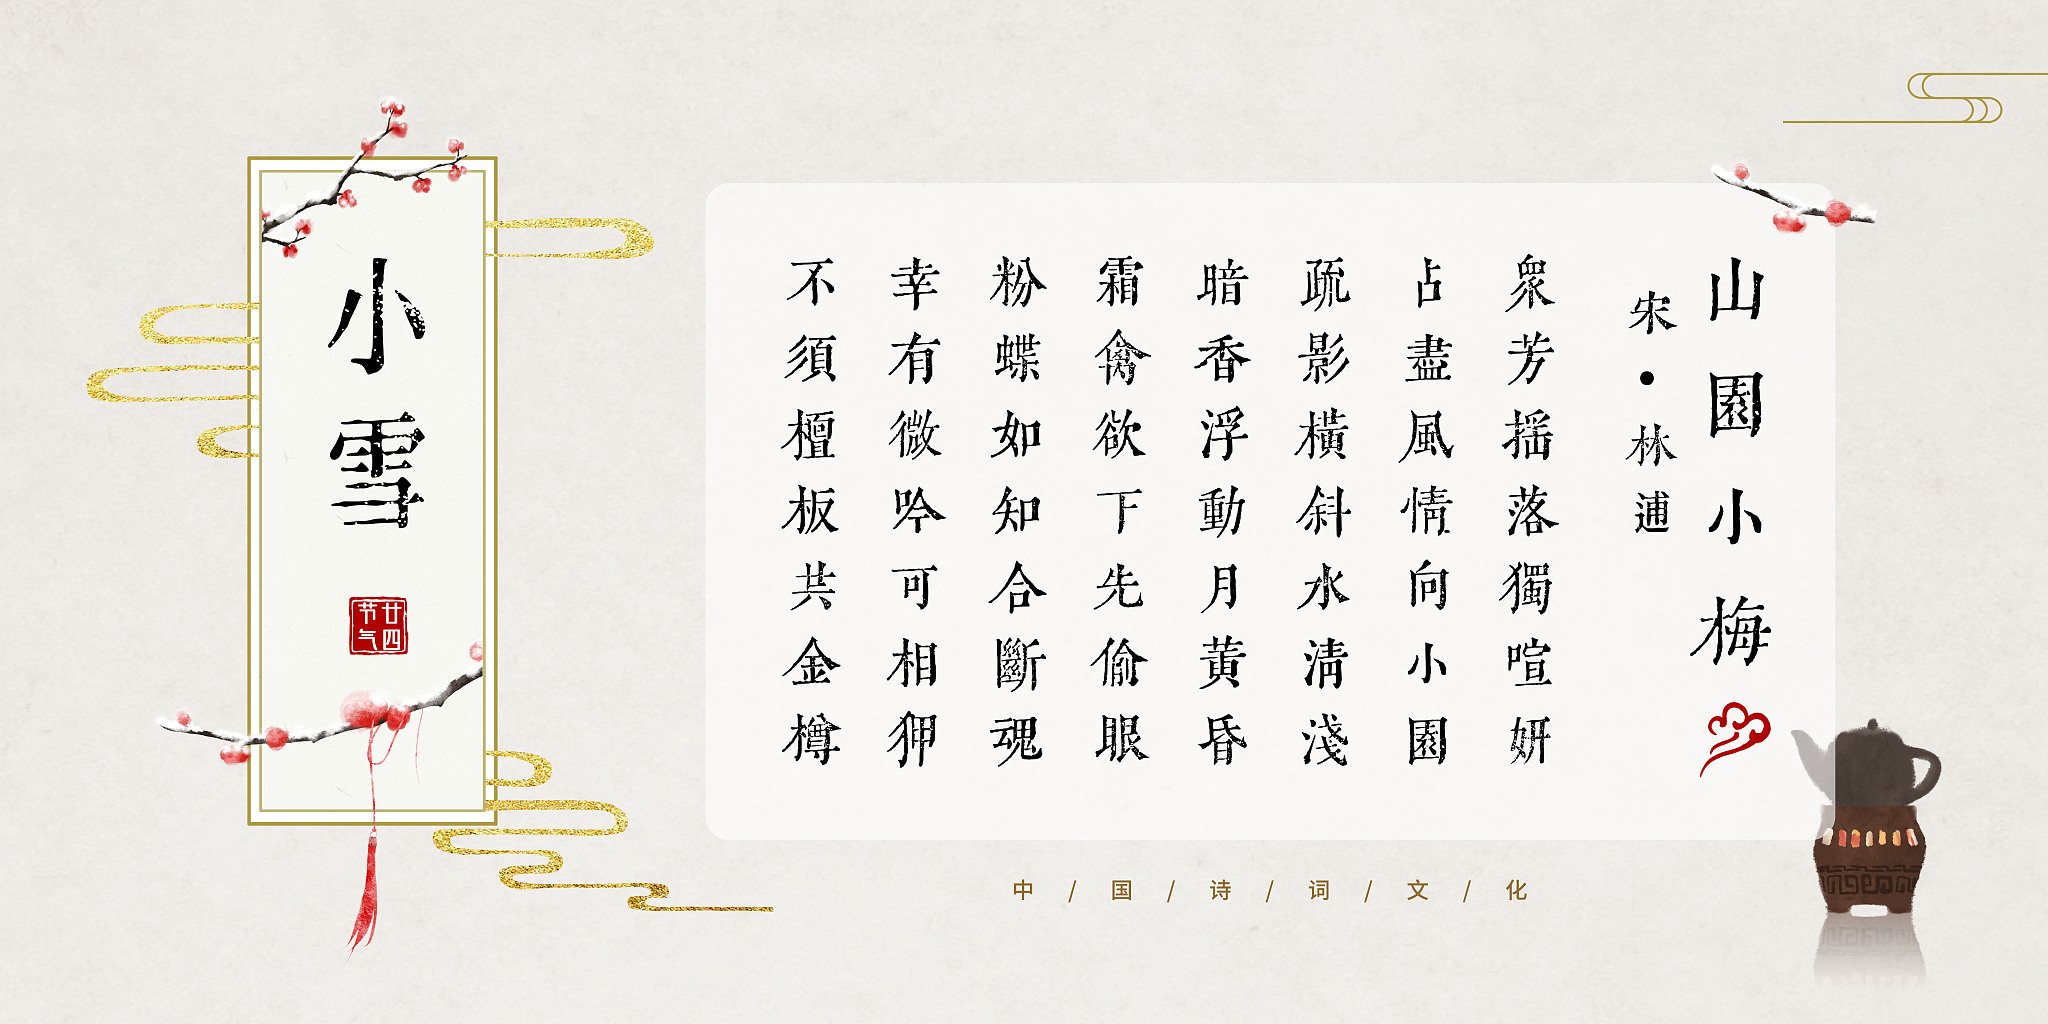 小雪
廿四节气
山園小梅
宋•林逋
衆芳揺落獨喧妍
占盡風情向小園
疏影橫斜水清淺
暗香浮動月黃昏
霜禽欲下先偷眼
粉蝶如知合斷魂
幸有微吟可相狎
不須檀板共金樽
中/国/诗/词/文/化